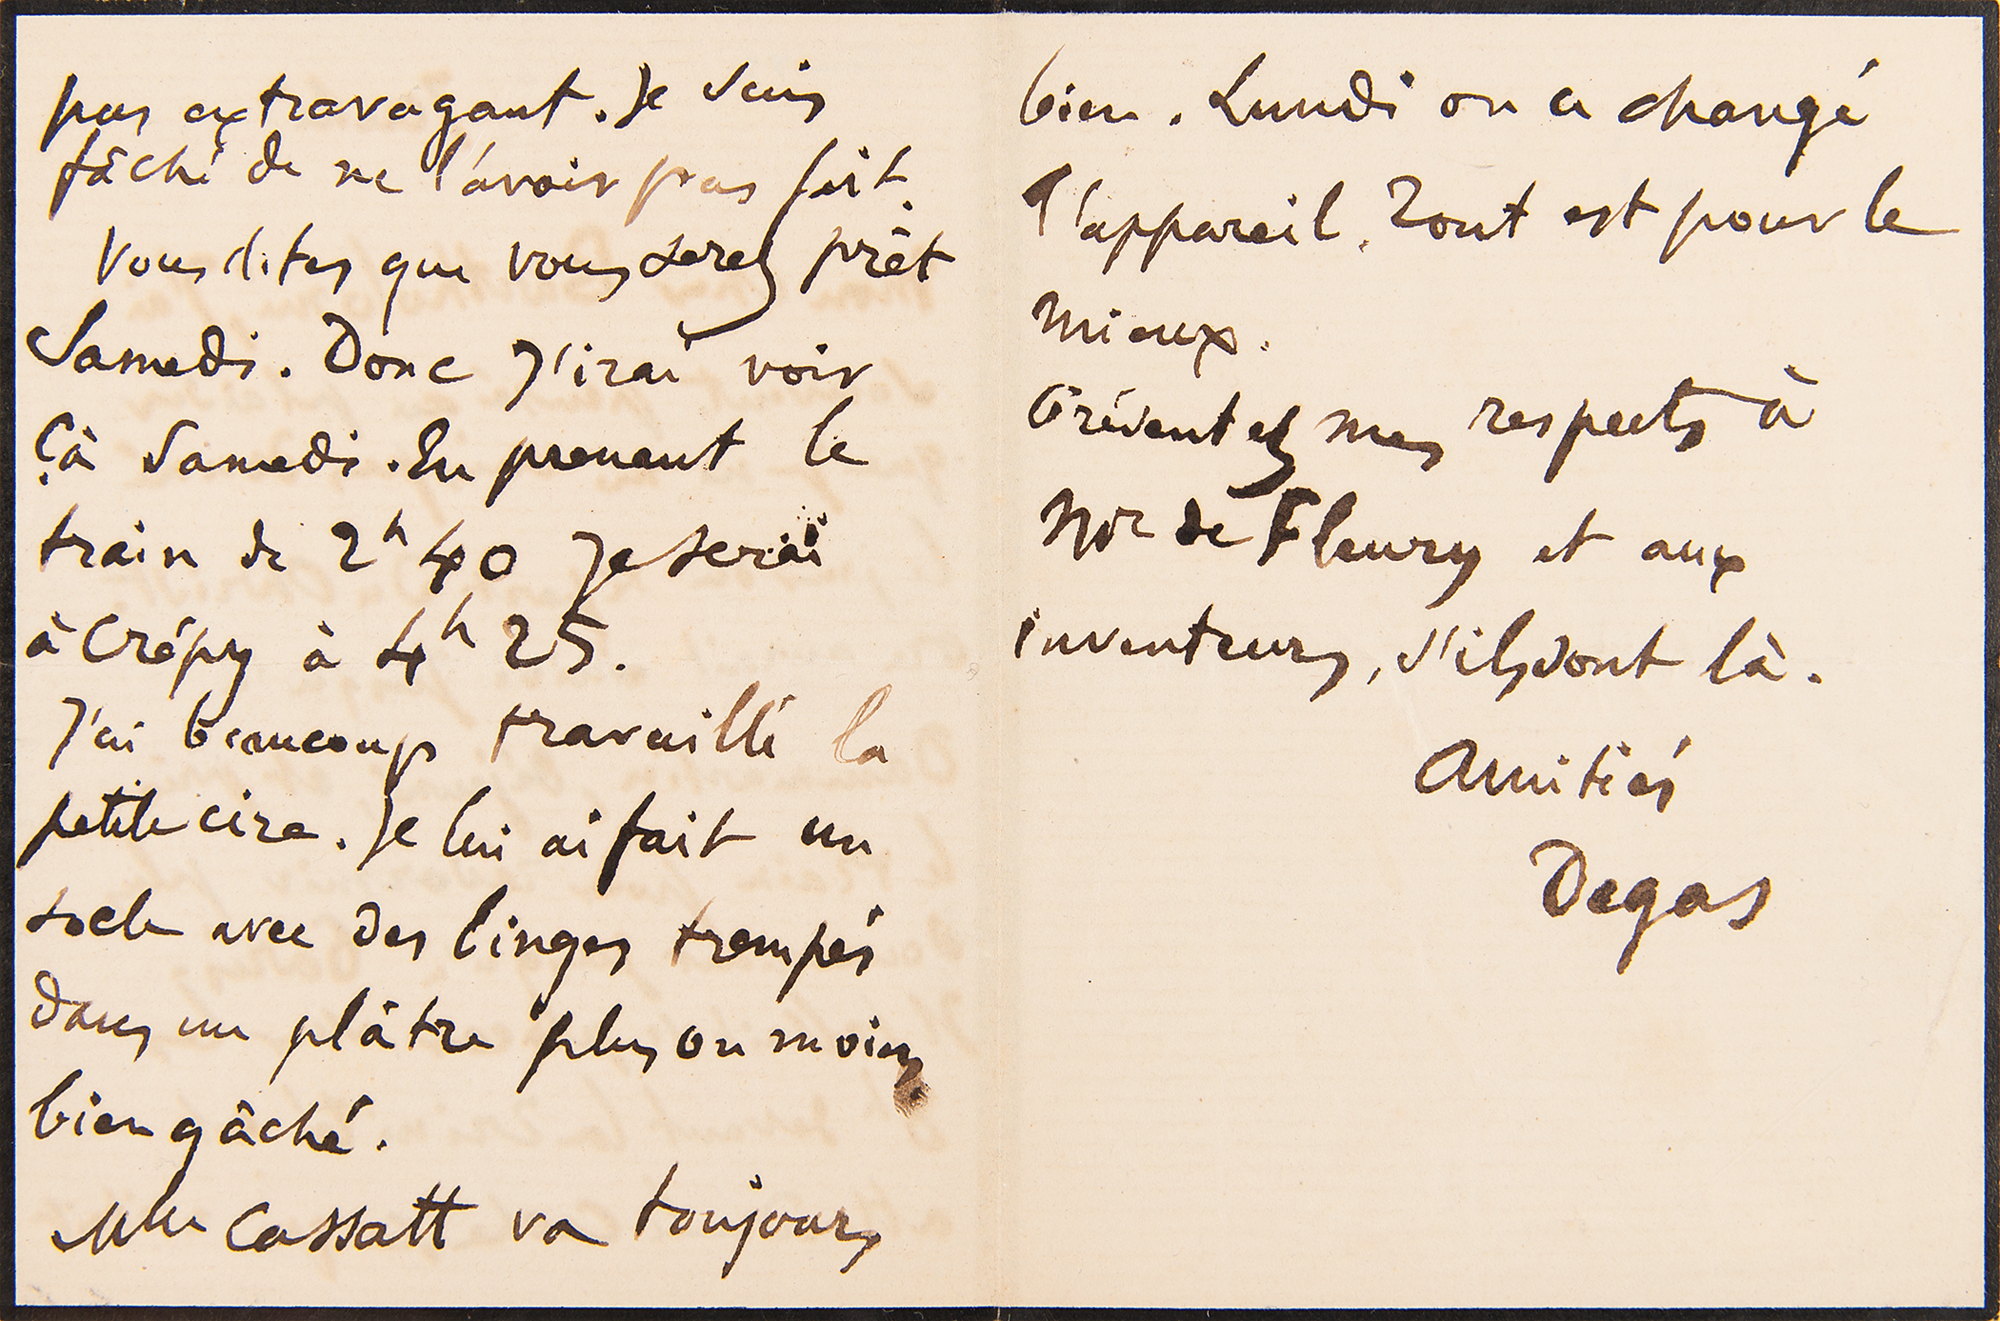 pas extravagant. Je suis
fâché de ne l'avoir pas fait.
Vous dites que vous serez prêt
Samedi. Donc j'irai voir
çà Samedi. En prenant le
train de 2h 40 je serai
à Crépy à 4h 25.
J'ai beaucoup travaillé la
petite cire. Je lui ai fait un
socle avec des linges trempés
dans un plâtre plus ou moins
bien gâché.
Mlle Cassatt va toujours
bien. Lundi on a changé
l'appareil. Tout est pour le
mieux.
Présentez mes respects à
Mr de Fleury et aux
inventeurs, s'ils sont là.
Amitiés
Degas